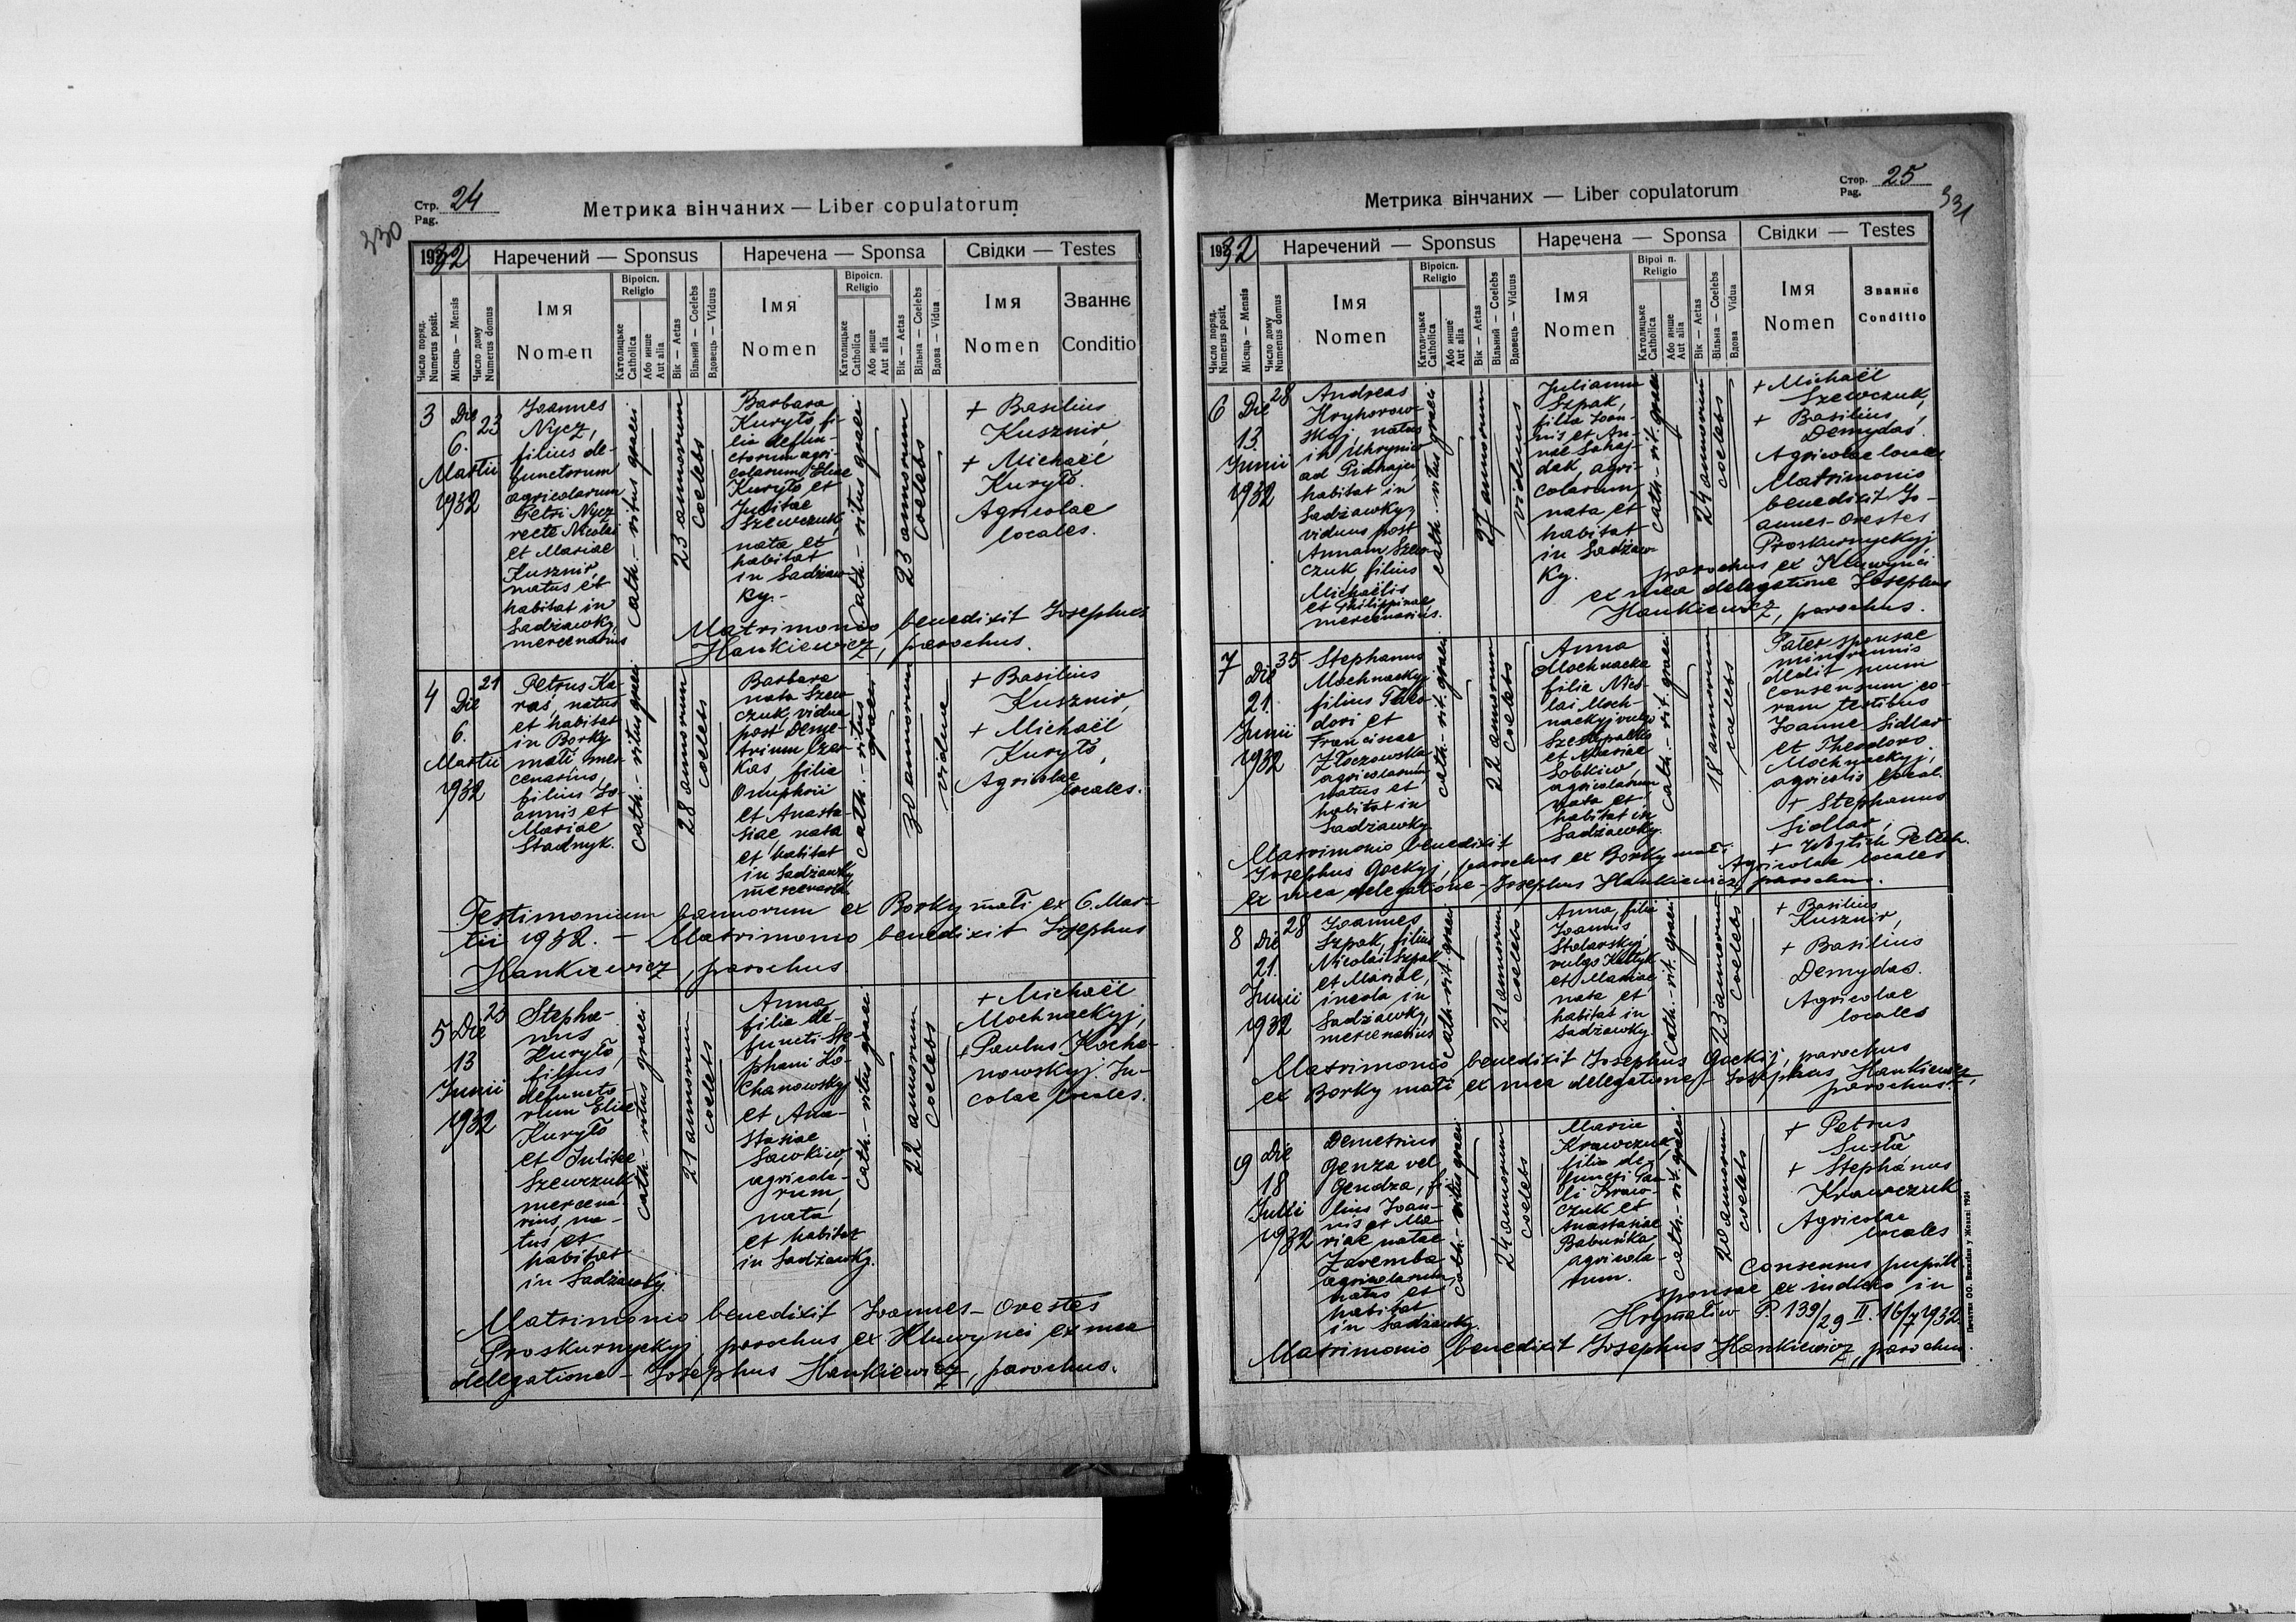 Стр. 24
Pag.
330
Метрика вінчаних — Liber copulatorum
1932
Наречений — Sponsus
Наречена — Sponsa
Свідки — Testes
Число поряд.
Numerus posit.
Місяць — Mensis
Число дому
Numerus domus
Імя
Nomen
Віроісп.
Religio
Католицьке
Catholica
Або инше
Aut alia
Вік — Aetas
Вільний — Coelebs
Вдовець — Viduus
Імя
Nomen
Віроісп.
Religio
Католицьке
Catholica
Або инше
Aut alia
Вік — Aetas
Вільна — Coelebs
Вдова — Vidua
Імя
Nomen
Званнє
Conditio
3
Die
6.
Martii
1932
23
Joannes
Nycz,
filius de-
functorum
agricolarum
Petri Nycz
recte Nicolai
et Mariae
Kusznir,
natus et
habitat in
Sadżawky,
mercenarius
cath. - ritus graeci
23 annorum
coelebs
Barbara
Kuryło, fi-
lia defun-
ctorum agri-
colarum Eliae
Kuryło et
Julitae
Szewczuk,
nata et
habitat
in Sadżaw-
ky.-
cath. - ritus graeci
23 annorum
coelebs
+ Basilius
Kusznir,
+ Michaël
Kuryło.
Agricolae
locales.
Matrimonio benedixit Josephus
Hankiewicz, parochus.
4
Die
6.
Martii
1932
21
Petrus Ka-
ras, natus
et habitat
in Borky
mali mer-
cenarius,
filius Jo-
annis et
Mariae
Stadnyk.
cath. - ritus graeci
28 annorum
coelebs
Barbara
nata Szew-
czuk, vidua
post Deme-
trium Czer-
kas, filia
Onuphrii
et Anasta-
siae, nata
et habitat
in Sadżawky
mercenaria
cath. - ritus
graeci
30 annorum
vidua
+ Basilius
Kusznir,
+ Michaël
Kuryło,
Agricolae
locales.
Testimonium bannorum ex Borky mali ex 6. Mar-
tii 1932. - Matrimonio benedixit Josephus
Hankiewicz, parochus
5
Die
13
Junii
1932
23
Stepha-
nus
Kuryło,
filius
defuncto-
rum Eliae
Kuryło
et Julitae
Szewczuk,
mercena-
rius, na-
tus et
habitat
in Sadżawky.
cath. - ritus graeci
21 annorum
coelebs
Anna
filia de-
functi Ste-
phani Ko-
chanowskyj
et Ana-
stasiae
Sawkiw,
agricola-
rum,
nata
et habitat
in Sadżawky.
cath. - ritus graeci
22 annorum
coelebs
+ Michaël
Mochnackyj,
+ Paulus Kocha-
nowskyj. In-
colae locales.
Matrimonio benedixit Joannes - Orestes
Proskurnyckyj, parochus ex Kluwynci ex mea
delegatione - Josephus Hankiewicz, parochus.
Стор. 25
Pag.
331
Метрика вінчаних — Liber copulatorum
1932
Наречений — Sponsus
Наречена — Sponsa
Свідки — Testes
Число поряд.
Numerus posit.
Місяць — Mensis
Число дому
Numerus domus
Імя
Nomen
Віроісп.
Religio
Католицьке
Catholica
Або инше
Aut alia
Вік — Aetas
Вільний — Coelebs
Вдовець — Viduus
Імя
Nomen
Вірої п.
Religio
Католицьке
Catholica
Або инше
Aut alia
Вік — Aetas
Вільна — Coelebs
Вдова Vidua
Імя
Nomen
Званнє
Conditio
6
Die
13.
Junii
1932
28
Andreas
Hryhorow-
skyj, natus
in Uhrynów
ad Pidhajci,
habitat in
Sadżawky,
viduus post
Annam Szew-
czuk, filius
Michaëlis
et Philippinae
mercenarius.
cath. - ritus graeci
27 annorum
viduus
Julianna
Szpak,
filia Joan-
nis et An-
nae Sahaj-
dak, agri-
colarum,
nata et
habitat
in Sadżaw-
ky.
cath. - rit. graeci
24 annorum
coelebs
+ Michaël
Szewczuk,
+ Basilius
Demydas.
Agricolae locales
Matrimonio
benedixit Jo-
annes - Orestes
Proskurnyckyj
parochus ex Kluwynci
ex mea delegatione Josephus
Hankiewicz, parochus.
7
Die
21.
Junii
1932
35
Stephanus
Mochnackyj
filius Theo-
dori et
Franciscae
Złoczowska
agricolarum
natus et
habitat in
Sadżawky
cath. - rit. graeci
22 annorum
coelebs
Anna
Mochnacka
filia Nico-
lai Moch-
nackyj vulgo
et Mariae
Sobkiw
agricolarum
nata et
habitat in
Sadżawky.
cath. - rit. graeci
18 annorum
coelebs
Pater sponsae
minorennis
dedit suum
consensum co-
ram testibus
Joanne Sidlar
et Theodoro
Mochnackyj,
agricolis local.
+ Stephanus
Sidlar,
+ Wojtich Pelech.
Agricolae locales
Matrimonio benedixit
Josephus Gockyj, parochus ex Borky mali
ex mea delegatione - Josephus Hankiewicz, parochus.
8
Die
21.
Junii
1932
28
Joannes
Szpak, filius
Nicolai Szpak
et Mariae,
incola in
Sadżawky,
mercenarius
cath. rit. graeci
21 annorum
coelebs
Anna, filia
Joannis
Stolarskyj
vulgo Kałtyk
et Mariae
nata et
habitat in
Sadżawky.
cath. - rit. graeci
23 annorum
coelebs
+ Basilius
Kusznir,
+ Basilius
Demydas.
Agricolae
locales
Matrimonio benedixit Josephus Gockij, parochus
ex Borky mali ex mea delegatione - Josephus Hankiewicz,
parochus.
9
Die
18
Julii
1932
Demetrius
Genza vel
Gendza, fi-
lius Joan-
nis et Ma-
riae natae
Zaremba
agricolarum,
natus et
habitat
in Sadżawky.
cath. - ritus graeci
24 annorum
coelebs
Maria
Krawczuk,
filia de-
functi Pau-
li Kraw-
czuk et
Anastasiae
Babuśka
agricola-
rum.
cath. - rit. graeci
20 annorum
coelebs
+ Petrus
Susła
+ Stephanus
Krawczuk
Agricolae
locales
Consensus pupill.
sponsae ex iudicio in
Hrymaliw P. 139/29 II. 16/7 1932
Matrimonio benedixit Josephus Hankiewicz, parochus.
Печатня ОО. Василіян у Жовкві 1924